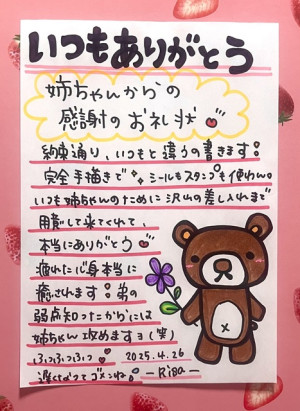 いつもありがとう
姉ちゃんからの
感謝のお礼状
約束通り、いつもと違うの書きます!
完全手描きで シールもスタンプも使わん。
いつも姉ちゃんのために沢山の差し入れまで
用意して来てくれて、
本当にありがとう
疲れた心身本当に
癒されます!弟の
弱点知ったからには
姉ちゃん攻めますヨ(笑)
ふっふっふっふっ 2025.4.26
遅くなってゴメンね。 -Risa-